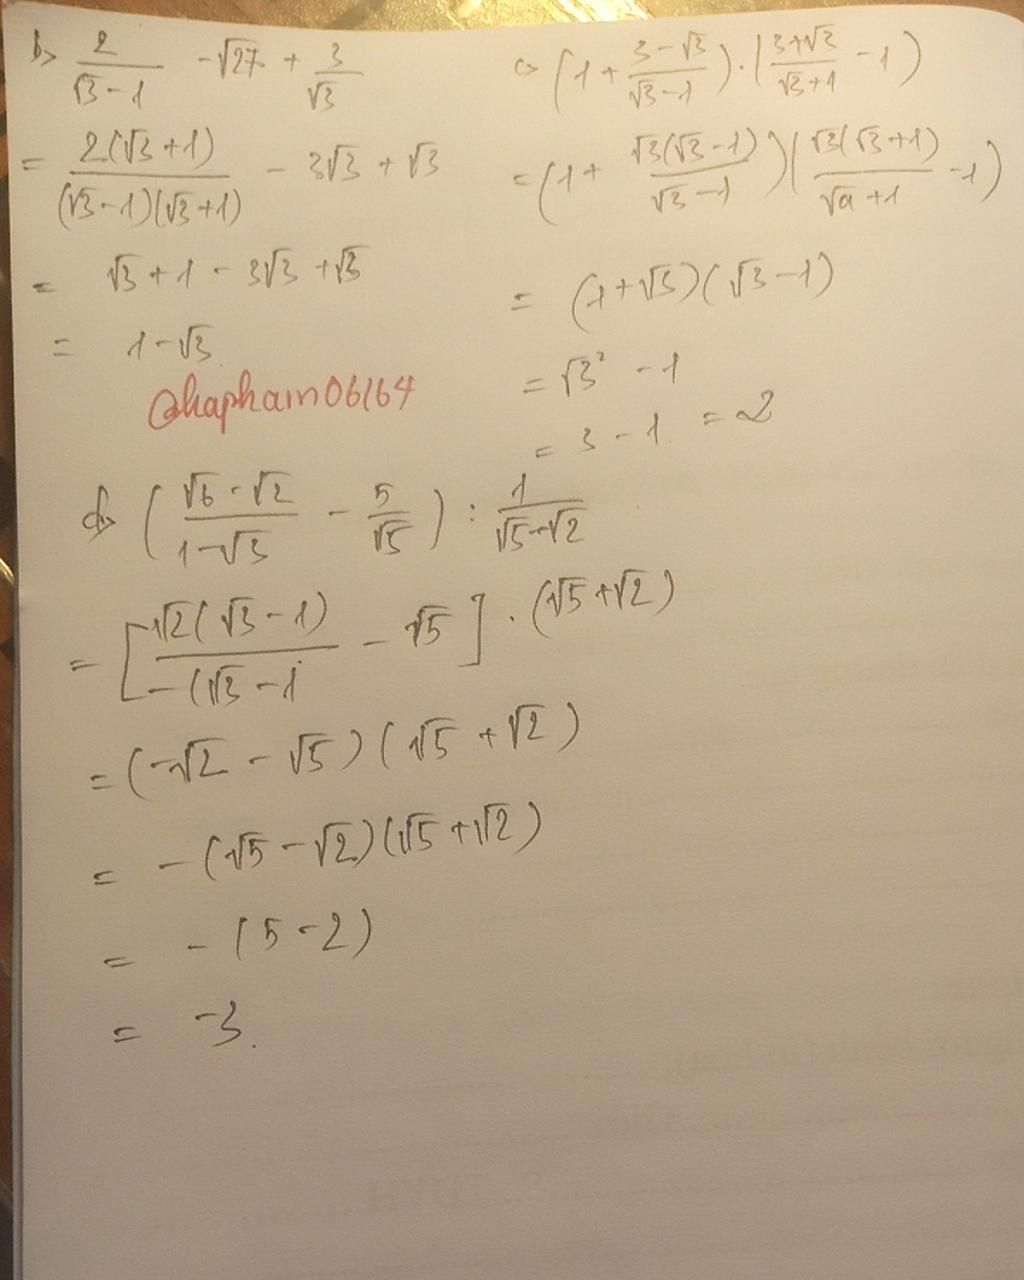 b> 2/(√3-1) - √27 + 3/√3
= 2(√3+1)/((√3-1)(√3+1)) - 3√3 + √3
= √3+1 - 3√3 + √3
= 1-√3
@hapham06164
c> (1 + (3-√3)/(√3-1)) . ((3+√3)/(√3+1) - 1)
= (1 + √3(√3-1)/(√3-1)) (√3(√3+1)/(√a+1) - 1)
= (1+√3)(√3-1)
= √3² - 1
= 3 - 1 = 2
d> ((√6-√2)/(1-√3) - 5/√5) : 1/(√5-√2)
= [√2(√3-1)/(-(√3-1) - √5] . (√5+√2)
= (-√2 - √5)(√5+√2)
= -(√5-√2)(√5+√2)
= -(5-2)
= -3.